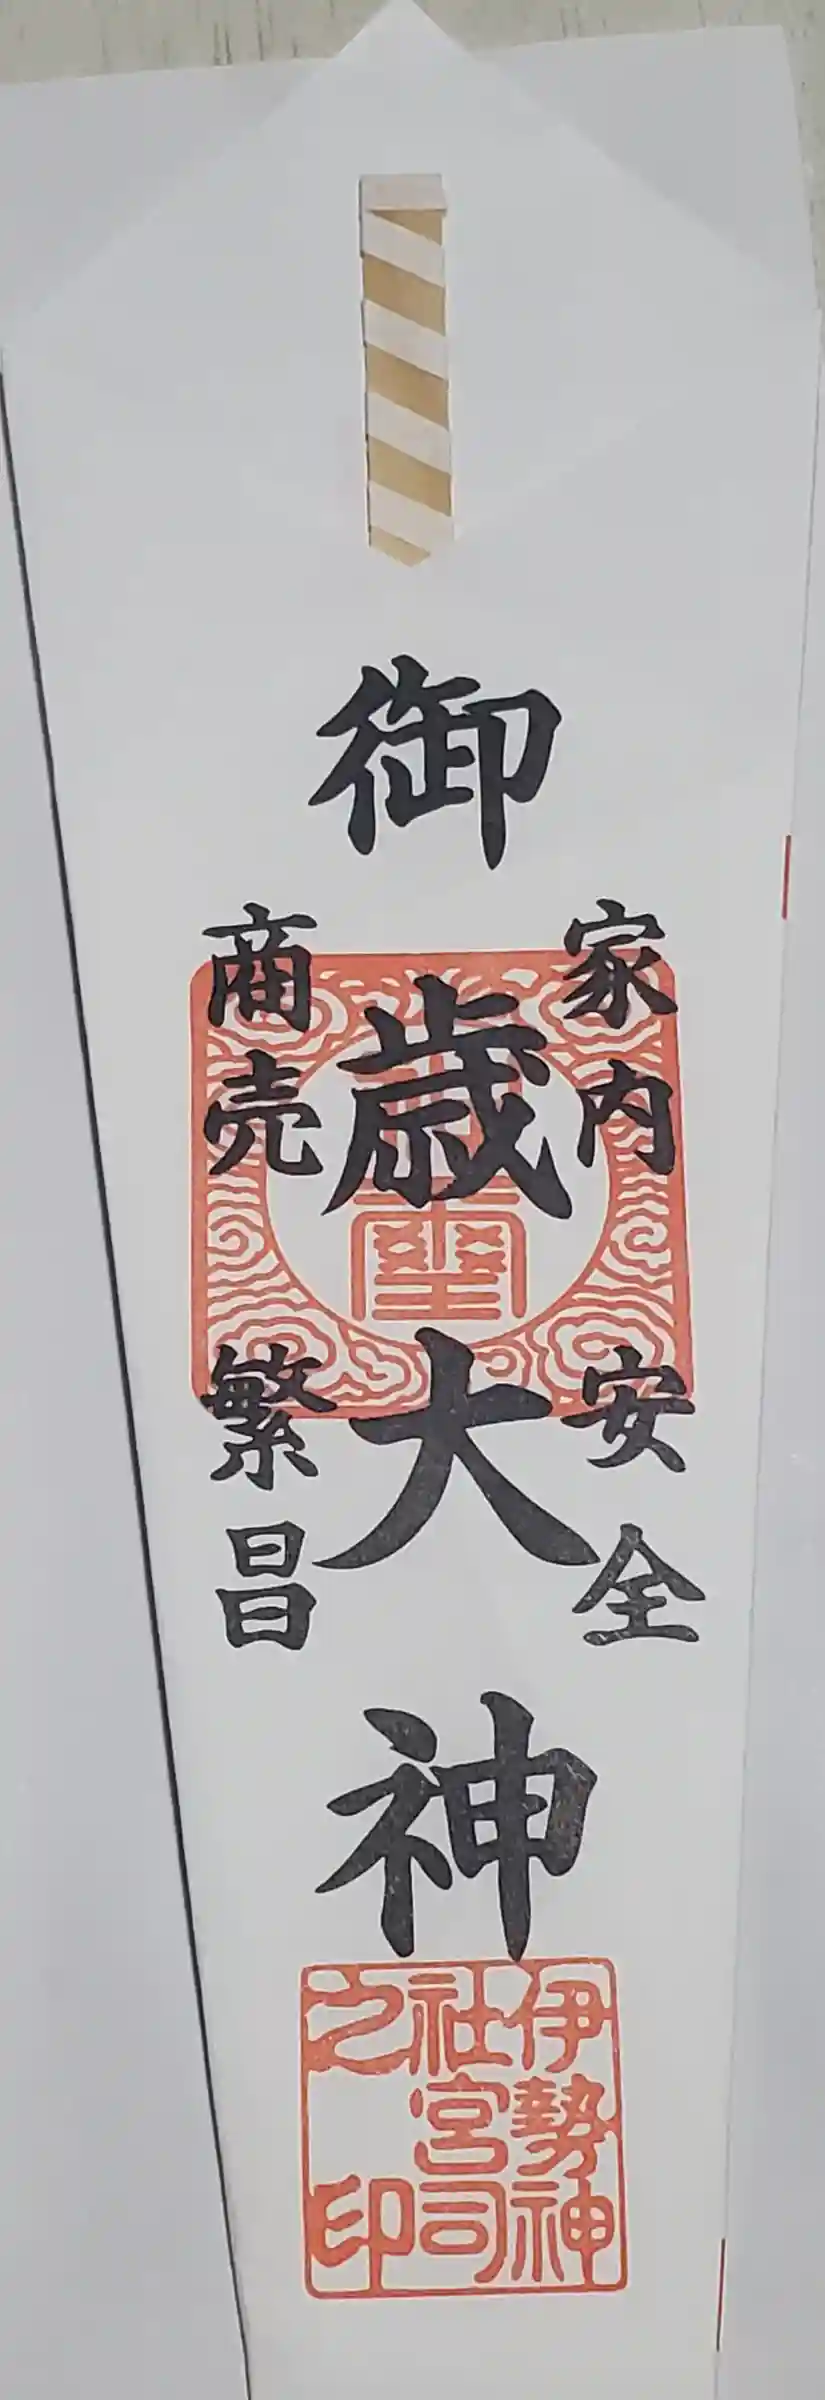 家内安全
御歳大神
商売繁昌
伊勢神
社宮司
之印